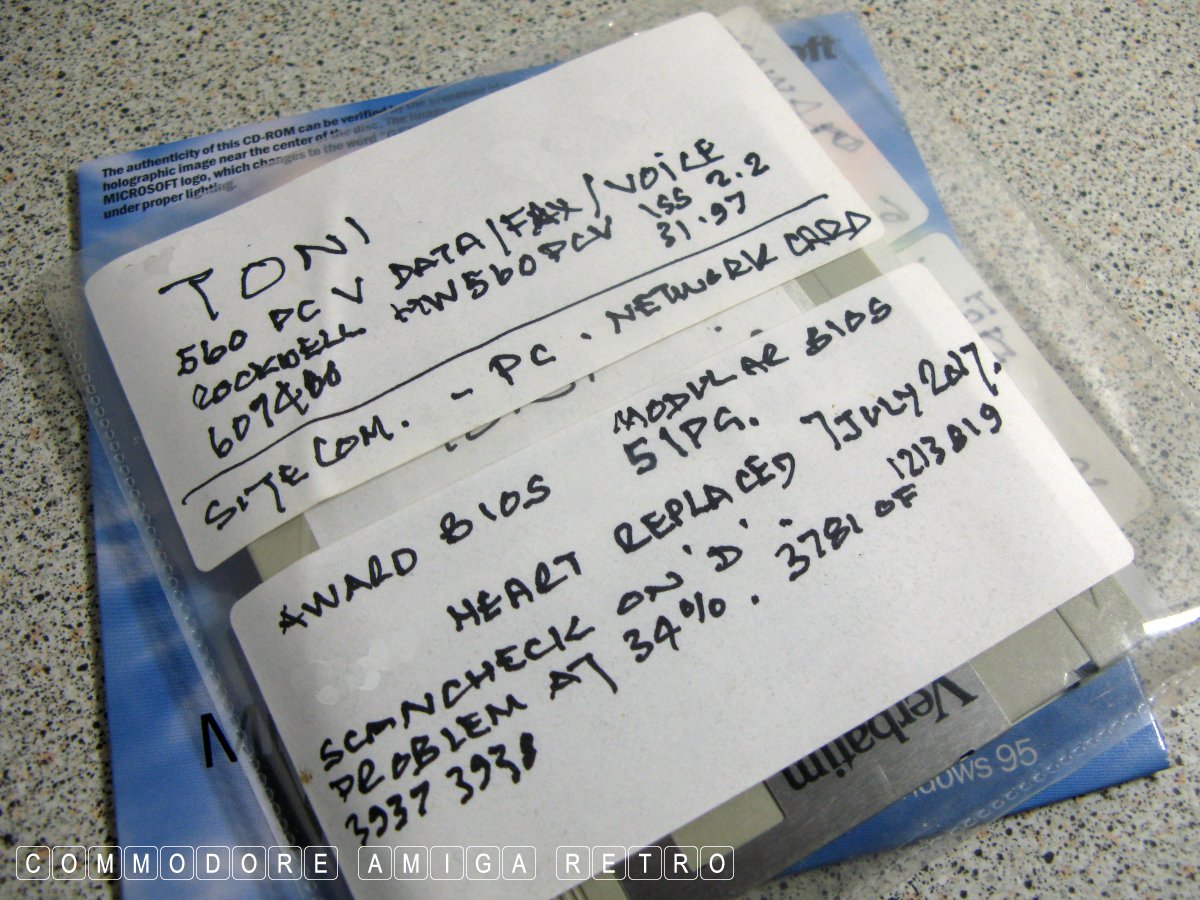 soft
The authenticity of this CD-ROM can be verified by the presence
holographic image near the center of the disc. The image
MICROSOFT logo, which changes to the word
under proper lighting.
TONI
560 PCV DATA/FAX/VOICE
ROCKWELL HW560PCV ISS 2.2
31.97
SITECOM. - PC. NETWORK CARD
AWARD BIOS MODULAR BIOS
51PG.
HEART REPLACED 7 JULY 2017.
SCANCHECK ON 'D'.
PROBLEM AT 34%. 3781 OF 1213819
3937 3938
Verbatim
ndows 95
COMMODORE AMIGA RETRO